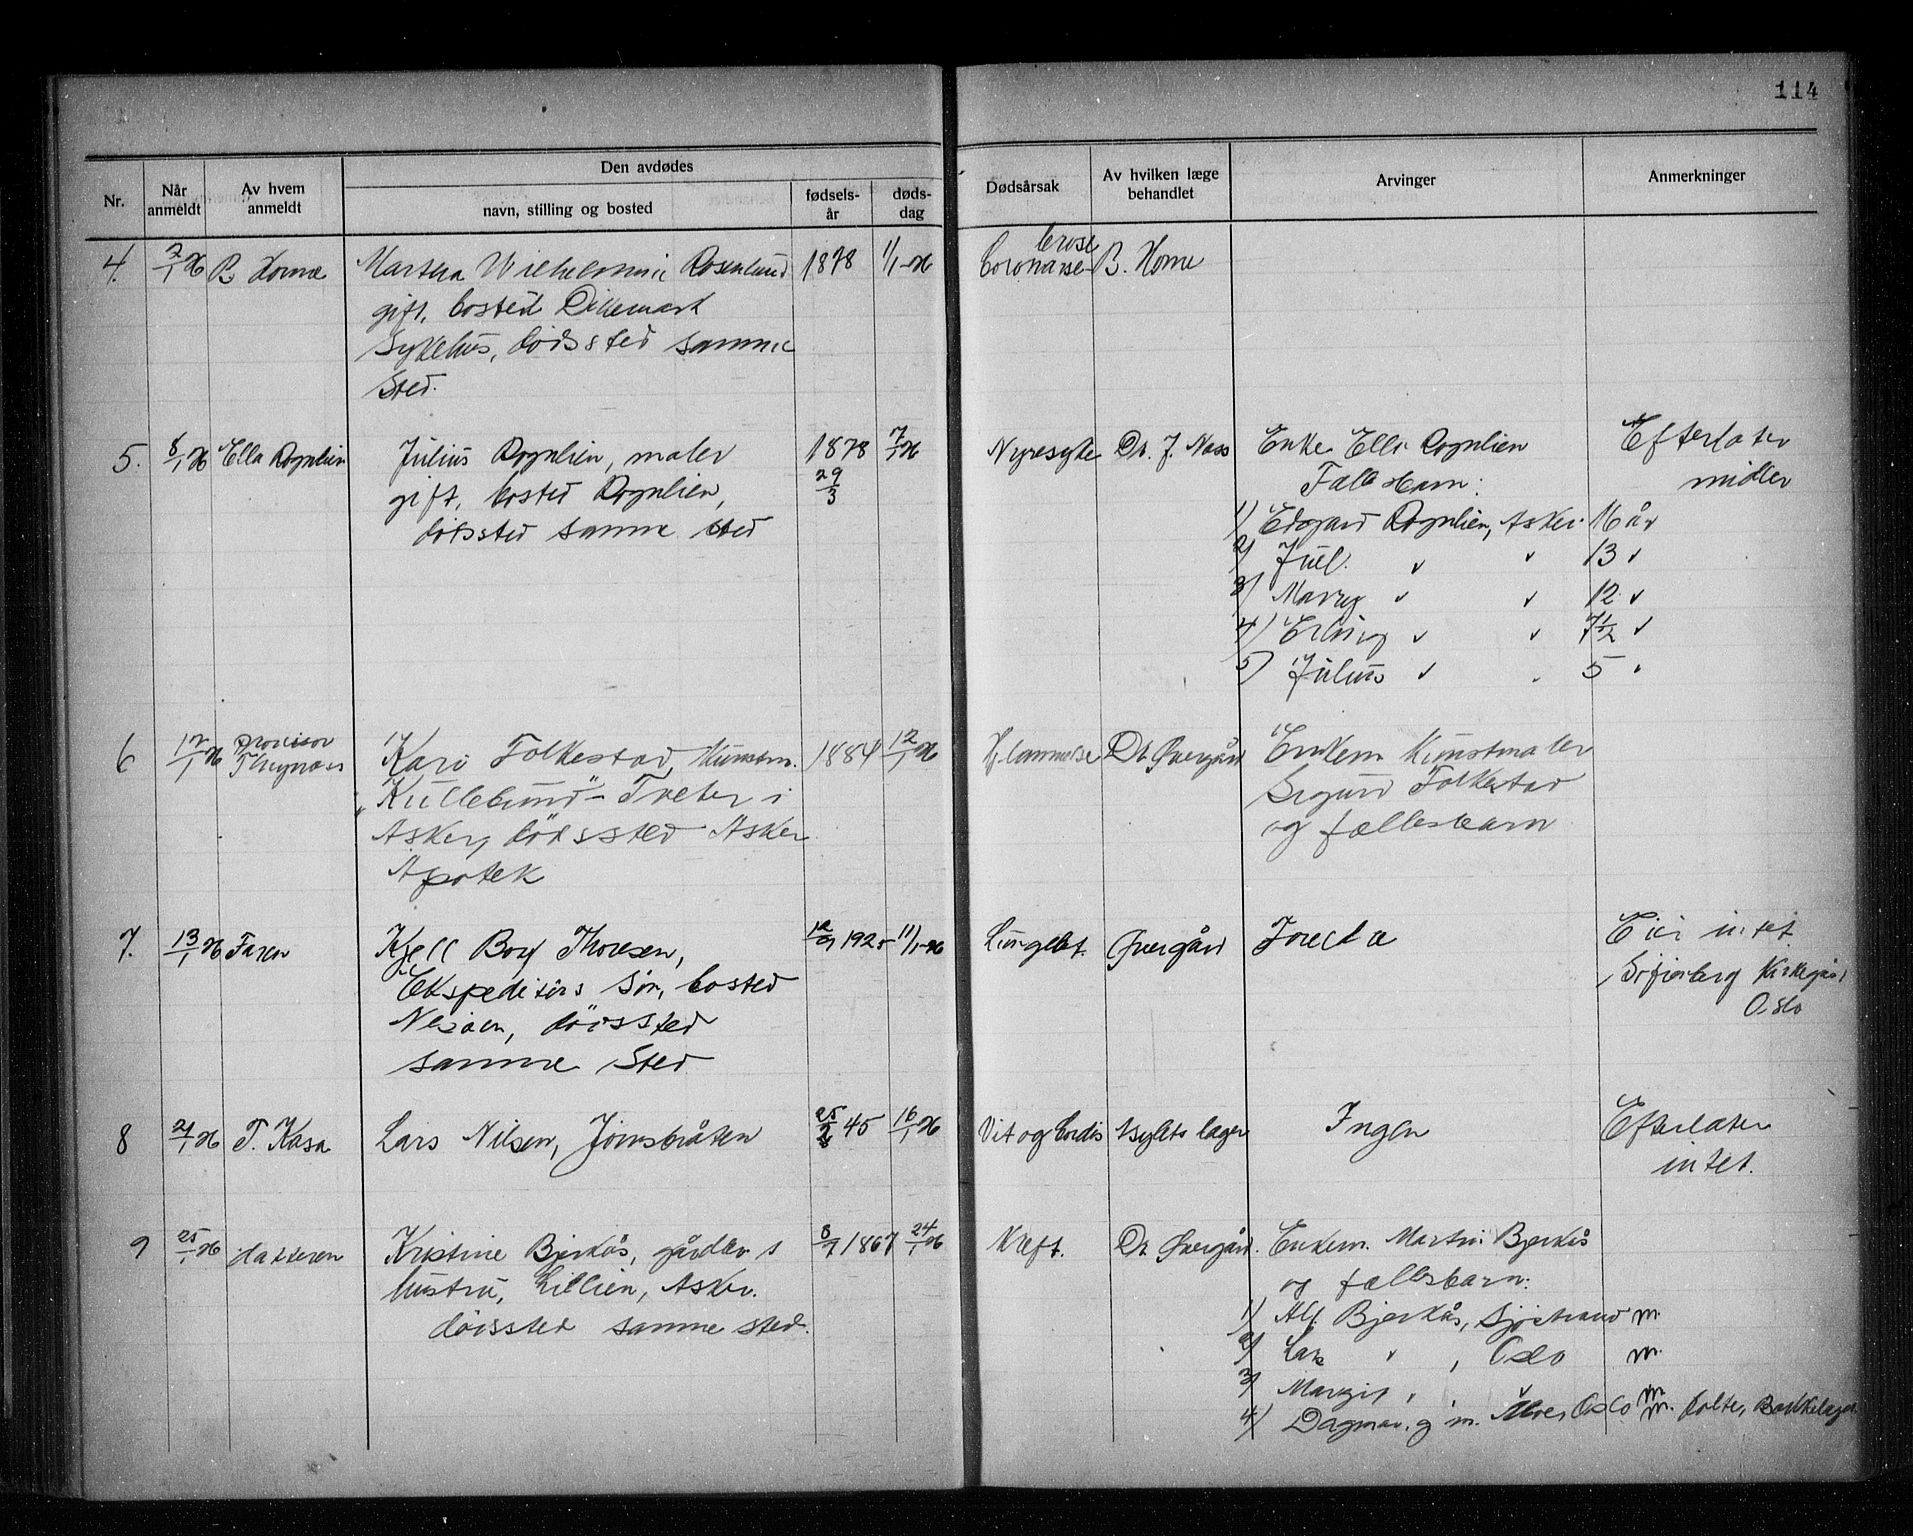 114
Nr.
Når anmeldt
Av hvem anmeldt
Den avdødes
navn, stilling og bosted
fødsels-år
døds-dag
Dødsårsak
Av hvilken læge behandlet
Arvinger
Anmerkninger
4. 7/1 26 B. Horne Martha Wilhelmine Rosenlund 1878 11/1-26 Coronarsclerose B. Horne
gift, bosted Dikemark
sykehus, dødssted samme
sted.
5. 8/1 26 Ella Rognlien Julius Rognlien, maler 1878 7/1 26 Nyresyke Dr. J. Næss Enke Ella Rognlien Efterlater
gift, bosted Rognlien, 29/3 Fælles barn: midler
dødssted samme sted 1) Edgard Rognlien, Asker 16 år
2) Juel. " " 13 "
3) " " 12 "
4) Erling " " 7 1/2 "
5) Julius " " 5 "
6 12/1 26 provisor Kari Folkestad, Kunstm. 1884 12/1 26 Dr Øvergård Enkem Kunstmaler
„Kullebund" - Tveter i Sigurd Folkestad
Asker, dödssted Asker og fællesbarn
Apotek
7. 13/1 26 Faren Kjell Borg Thoresen, 12/9 1925 11/1-26 Lungebet. Øvergård Foreldre Eier intet.
Ekspeditørs søn, bosted Sofienberg Kirkegård
Nesøen, dødssted Oslo
samme sted
8 21/1 26 T. Kasa Lars Nilsen, Jonsbråten 25/2 45 16/1 26 Vit og Cordis Asylets læge Ingen Efterlater
intet.
9 25/1 26 datteren Kristine Bjerkås, gårdbr s 8/7 1867 24/1 26 Kreft. Dr Øvergård. Enkem. Martin Bjerkås
hustru, Lillien, Asker. og fællesbarn:
dødssted samme sted. 1) Alf Bjerkås, Sjöstrand m.
2) Lars " , Oslo m.
3) Margit " " m
4) Dagmar, g. m. Oslo m.